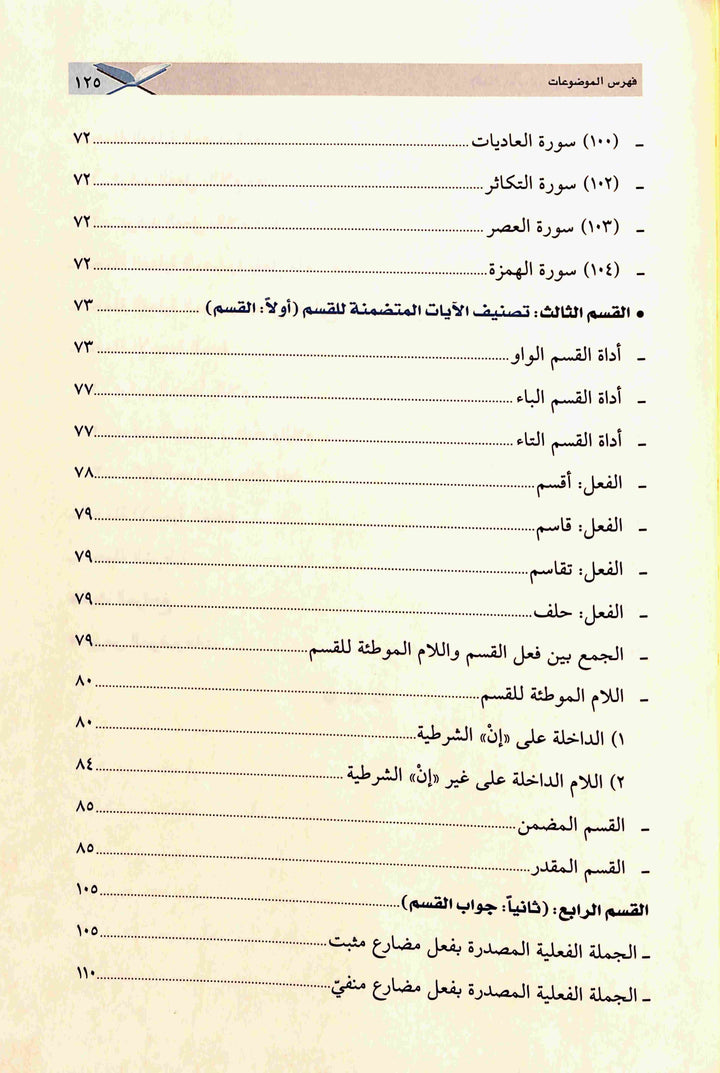 فهرس الموضوعات ١٢٥
ـ (١٠٠) سورة العاديات ٧٢
ـ (١٠٢) سورة التكاثر ٧٢
ـ (١٠٣) سورة العصر ٧٢
ـ (١٠٤) سورة الهمزة ٧٢
• القسم الثالث: تصنيف الآيات المتضمنة للقسم (أولاً: القسم) ٧٣
ـ أداة القسم الواو ٧٣
ـ أداة القسم الباء ٧٧
ـ أداة القسم التاء ٧٧
ـ الفعل: أقسم ٧٨
ـ الفعل: قاسم ٧٩
ـ الفعل: تقاسم ٧٩
ـ الفعل: حلف ٧٩
ـ الجمع بين فعل القسم واللام الموطئة للقسم ٧٩
ـ اللام الموطئة للقسم ٨٠
١) الداخلة على «إنْ» الشرطية ٨٠
٢) اللام الداخلة على غير «إنْ» الشرطية ٨٤
ـ القسم المضمن ٨٥
ـ القسم المقدر ٨٥
القسم الرابع: (ثانياً: جواب القسم) ١٠٥
ـ الجملة الفعلية المصدرة بفعل مضارع مثبت ١٠٥
ـ الجملة الفعلية المصدرة بفعل مضارع منفيّ ١١٠